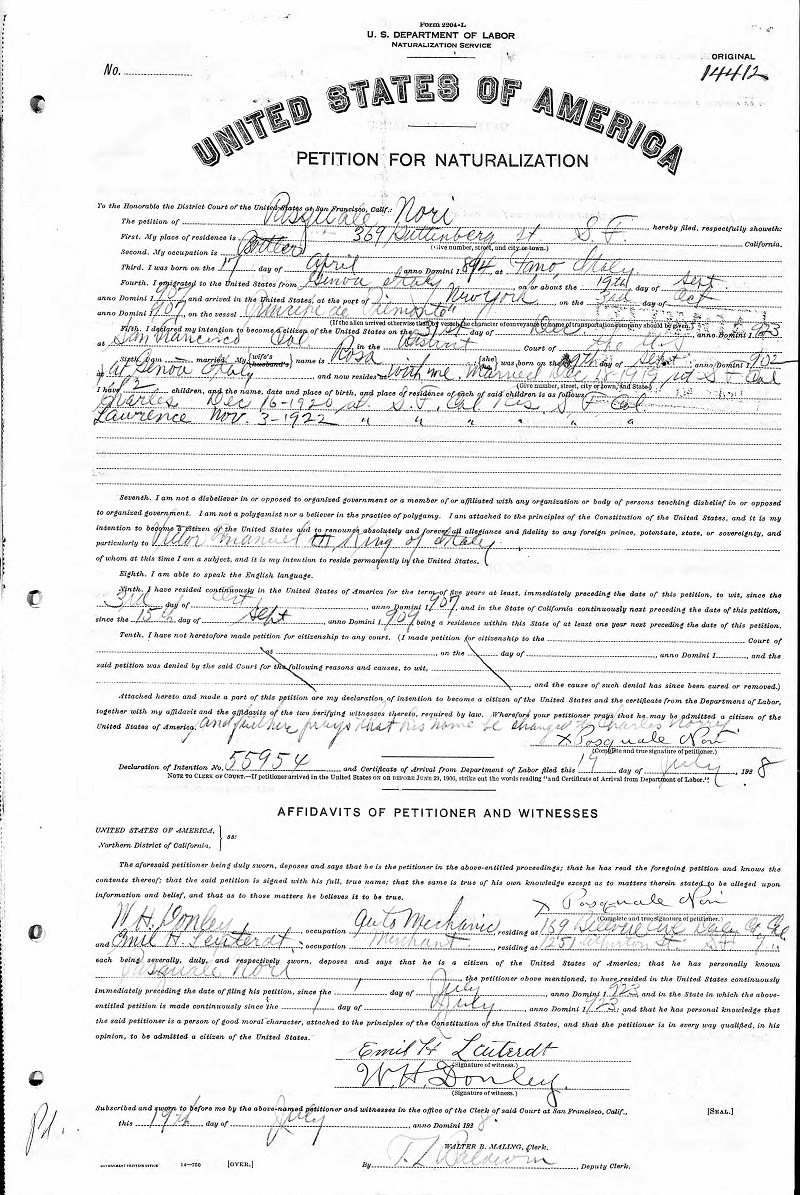 Form 2204-L
U. S. DEPARTMENT OF LABOR
NATURALIZATION SERVICE
ORIGINAL
No. 14412
UNITED STATES OF AMERICA
PETITION FOR NATURALIZATION
To the Honorable the District Court of the United States at San Francisco, Calif.:
The petition of Pasquale Nori hereby filed, respectfully showeth:
First. My place of residence is 369 Guttenberg st S. F. California.
(Give number, street, and city or town.)
Second. My occupation is
Third. I was born on the 17 day of April anno Domini 1894, at Fano Italy
Fourth. I emigrated to the United States from Genoa Italy on or about the 19th day of Sept
anno Domini 1907 and arrived in the United States, at the port of New York on the 3rd day of Oct
anno Domini 1907, on the vessel Principe de Piemonte"
(If the alien arrived otherwise than by vessel, the character of conveyance or name of transportation company should be given.)
Fifth. I declared my intention to become a citizen of the United States on the day of Dec anno Domini 1923
at San Francisco Cal in the District Court of the
Sixth. I am married. My wife's husband's name is Rosa (she) was born on the day of Sept anno Domini 1902
at Genoa Italy and now resides at with me. Married Dec 1919 at S F Cal
(Give number, street, city or town, and State.)
I have 2 children, and the name, date and place of birth, and place of residence of each of said children is as follows:
Charles Dec 16-1920 at S. F. Cal Res S F Cal
Laurence Nov. 3-1922 " " " " "
Seventh. I am not a disbeliever in or opposed to organized government or a member of or affiliated with any organization or body of persons teaching disbelief in or opposed
to organized government. I am not a polygamist nor a believer in the practice of polygamy. I am attached to the principles of the Constitution of the United States, and it is my
intention to become a citizen of the United States and to renounce absolutely and forever all allegiance and fidelity to any foreign prince, potentate, state, or sovereignty, and
particularly to Victor Emanuel III King of Italy
of whom at this time I am a subject, and it is my intention to reside permanently in the United States.
Eighth. I am able to speak the English language.
Ninth. I have resided continuously in the United States of America for the term of five years at least, immediately preceding the date of this petition, to wit, since the
3rd day of Oct anno Domini 1907, and in the State of California continuously next preceding the date of this petition,
since the 15th day of Sept anno Domini 1909 being a residence within this State of at least one year next preceding the date of this petition.
Tenth. I have not heretofore made petition for citizenship to any court. (I made petition for citizenship to the Court of
at , on the day of anno Domini 1 , and the
said petition was denied by the said Court for the following reasons and causes, to wit,
, and the cause of such denial has since been cured or removed.)
Attached hereto and made a part of this petition are my declaration of intention to become a citizen of the United States and the certificate from the Department of Labor,
together with my affidavit and the affidavits of the two verifying witnesses thereto, required by law. Wherefore your petitioner prays that he may be admitted a citizen of the
United States of America, and further prays that his name be changed to Charles
x Pasquale Nori
(Complete and true signature of petitioner.)
Declaration of Intention No. 55954 and Certificate of Arrival from Department of Labor filed this 19 day of July, 1928
NOTE TO CLERK OF COURT.—If petitioner arrived in the United States on or before June 29, 1906, strike out the words reading "and Certificate of Arrival from Department of Labor."
AFFIDAVITS OF PETITIONER AND WITNESSES
UNITED STATES OF AMERICA,
Northern District of California, ss:
The aforesaid petitioner being duly sworn, deposes and says that he is the petitioner in the above-entitled proceedings; that he has read the foregoing petition and knows the
contents thereof; that the said petition is signed with his full, true name; that the same is true of his own knowledge except as to matters therein stated to be alleged upon
information and belief, and that as to those matters he believes it to be true.
x Pasquale Nori
(Complete and true signature of petitioner.)
W H Donley, occupation Auto Mechanic residing at 169 Bellevue Ave Daly Cy Cal
and Emil H Leuterdt, occupation Merchant, residing at St S F
each being severally, duly, and respectively sworn, deposes and says that he is a citizen of the United States of America; that he has personally known
Pasquale Nori
the petitioner above mentioned, to have resided in the United States continuously
immediately preceding the date of filing his petition, since the 1 day of July anno Domini 1923 and in the State in which the above-
entitled petition is made continuously since the 1 day of July anno Domini 1923; and that he has personal knowledge that
the said petitioner is a person of good moral character, attached to the principles of the Constitution of the United States, and that the petitioner is in every way qualified, in his
opinion, to be admitted a citizen of the United States.
Emil H Leuterdt
(Signature of witness.)
W. H. Donley.
(Signature of witness.)
Subscribed and sworn to before me by the above-named petitioner and witnesses in the office of the Clerk of said Court at San Francisco, Calif.,
[SEAL.]
this 19th day of July, anno Domini 1928.
WALTER B. MALING, Clerk.
By T L Baldwin, Deputy Clerk.
GOVERNMENT PRINTING OFFICE 14—750 [OVER.]